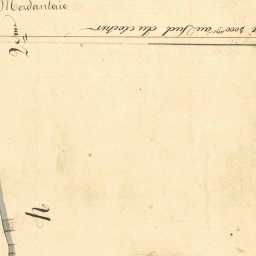 Mordanterie
à 5000 ᵐ au Sud du clocher
2ème
N